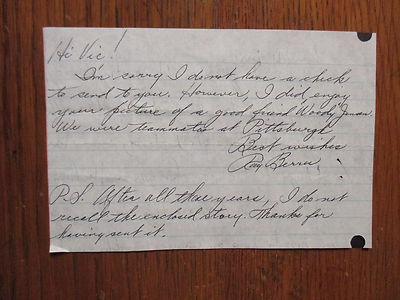 Hi Vic!
I'm sorry I do not have a check
to send to you. However, I did enjoy
your picture of a good friend Woody Jensen.
We were teammates at Pittsburgh
Best wishes
Ray Berres
P.S. After all these years, I do not
recall the enclosed story. Thanks for
having sent it.